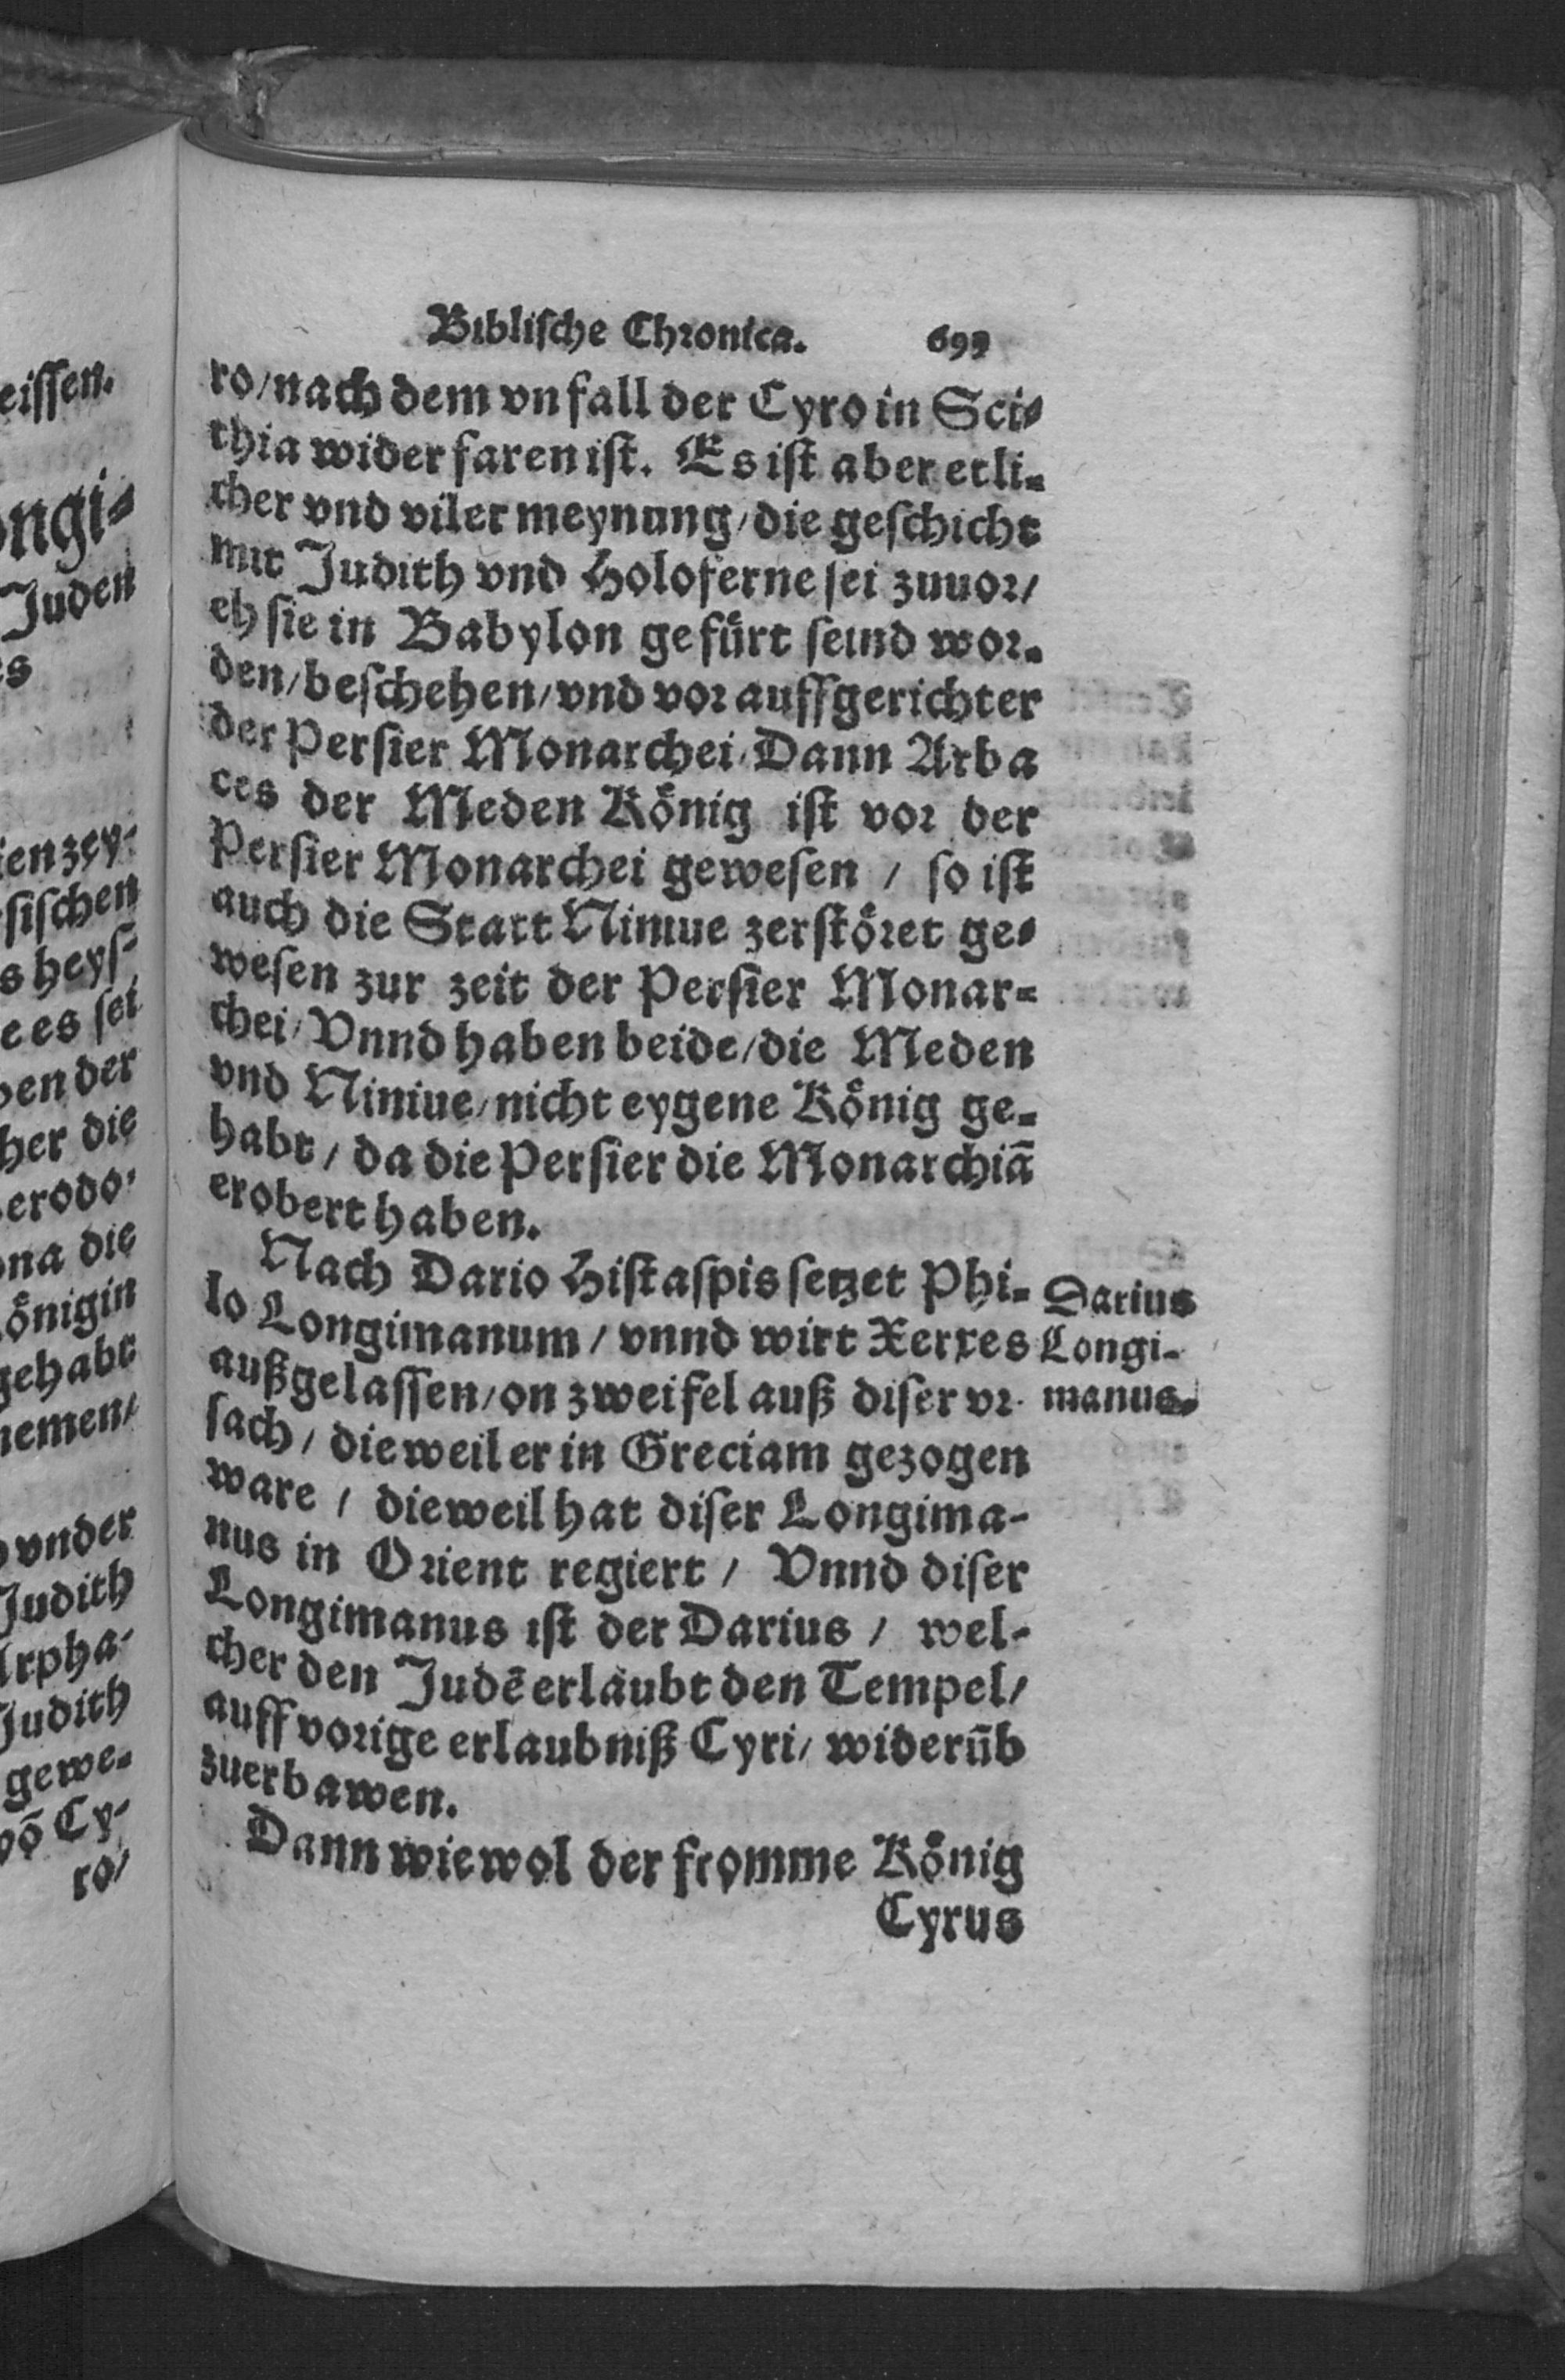 Biblische Chronica. 699
ro/nach dem vnfall der Cyro in Sci-
thia widerfaren ist. Es ist aber etli-
cher vnd viler meynung/die geschicht
mit Judith vnd Holoferne sei zuuor/
eh sie in Babylon gefürt seind wor-
den/beschehen/vnd vor auffgerichter
der Persier Monarchei/Dann Arba
ces der Meden König ist vor der
Persier Monarchei gewesen / so ist
auch die Statt Niniue zerstöret ge-
wesen zur zeit der Persier Monar-
chei/Vnnd haben beide/die Meden
vnd Niniue/nicht eygene König ge-
habt / da die Persier die Monarchiā
erobert haben.
Nach Dario Histaspis setzet Phi-
lo Longimanum / vnnd wirt Xerxes
außgelassen/on zweifel auß diser vr-
sach / dieweil er in Greciam gezogen
ware / dieweil hat diser Longima-
nus in Orient regiert / Vnnd diser
Longimanus ist der Darius / wel-
cher den Judē erlaubt den Tempel/
auff vorige erlaubniß Cyri/ widerūb
zuerbawen.
Dann wiewol der fromme König
Cyrus
Darius
Longi-
manus.
eissen.
ongi-
Juden
es
ien zey-
sischen
s heys-
e es sei
ben der
her die
erodo-
ona die
önigin
gehabt
nemen/
vnder
Judith
Arpha-
Judith
gewe-
vō Cy-
ro/